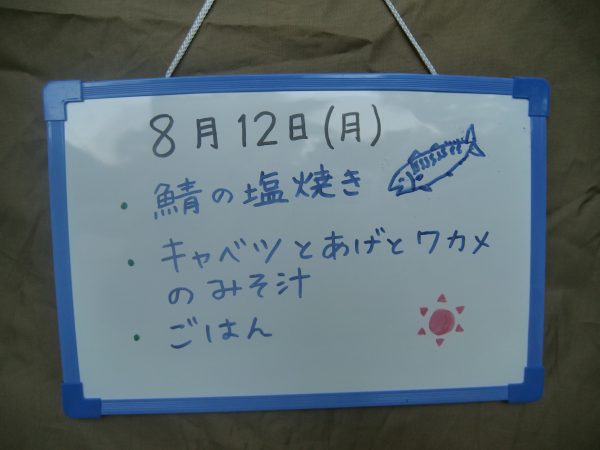 8月12日(月)
・鯖の塩焼き
・キャベツとあげとワカメ
のみそ汁
・ごはん